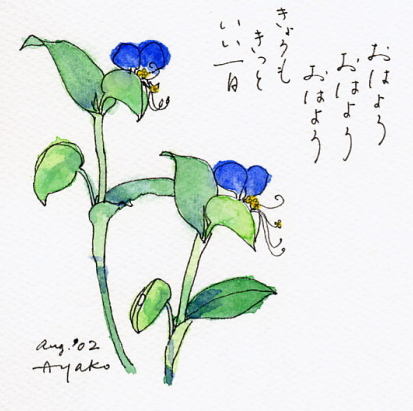 おはよう
おはよう
おはよう
きょうも
きっと
いい一日
Aug. '02
Ayako